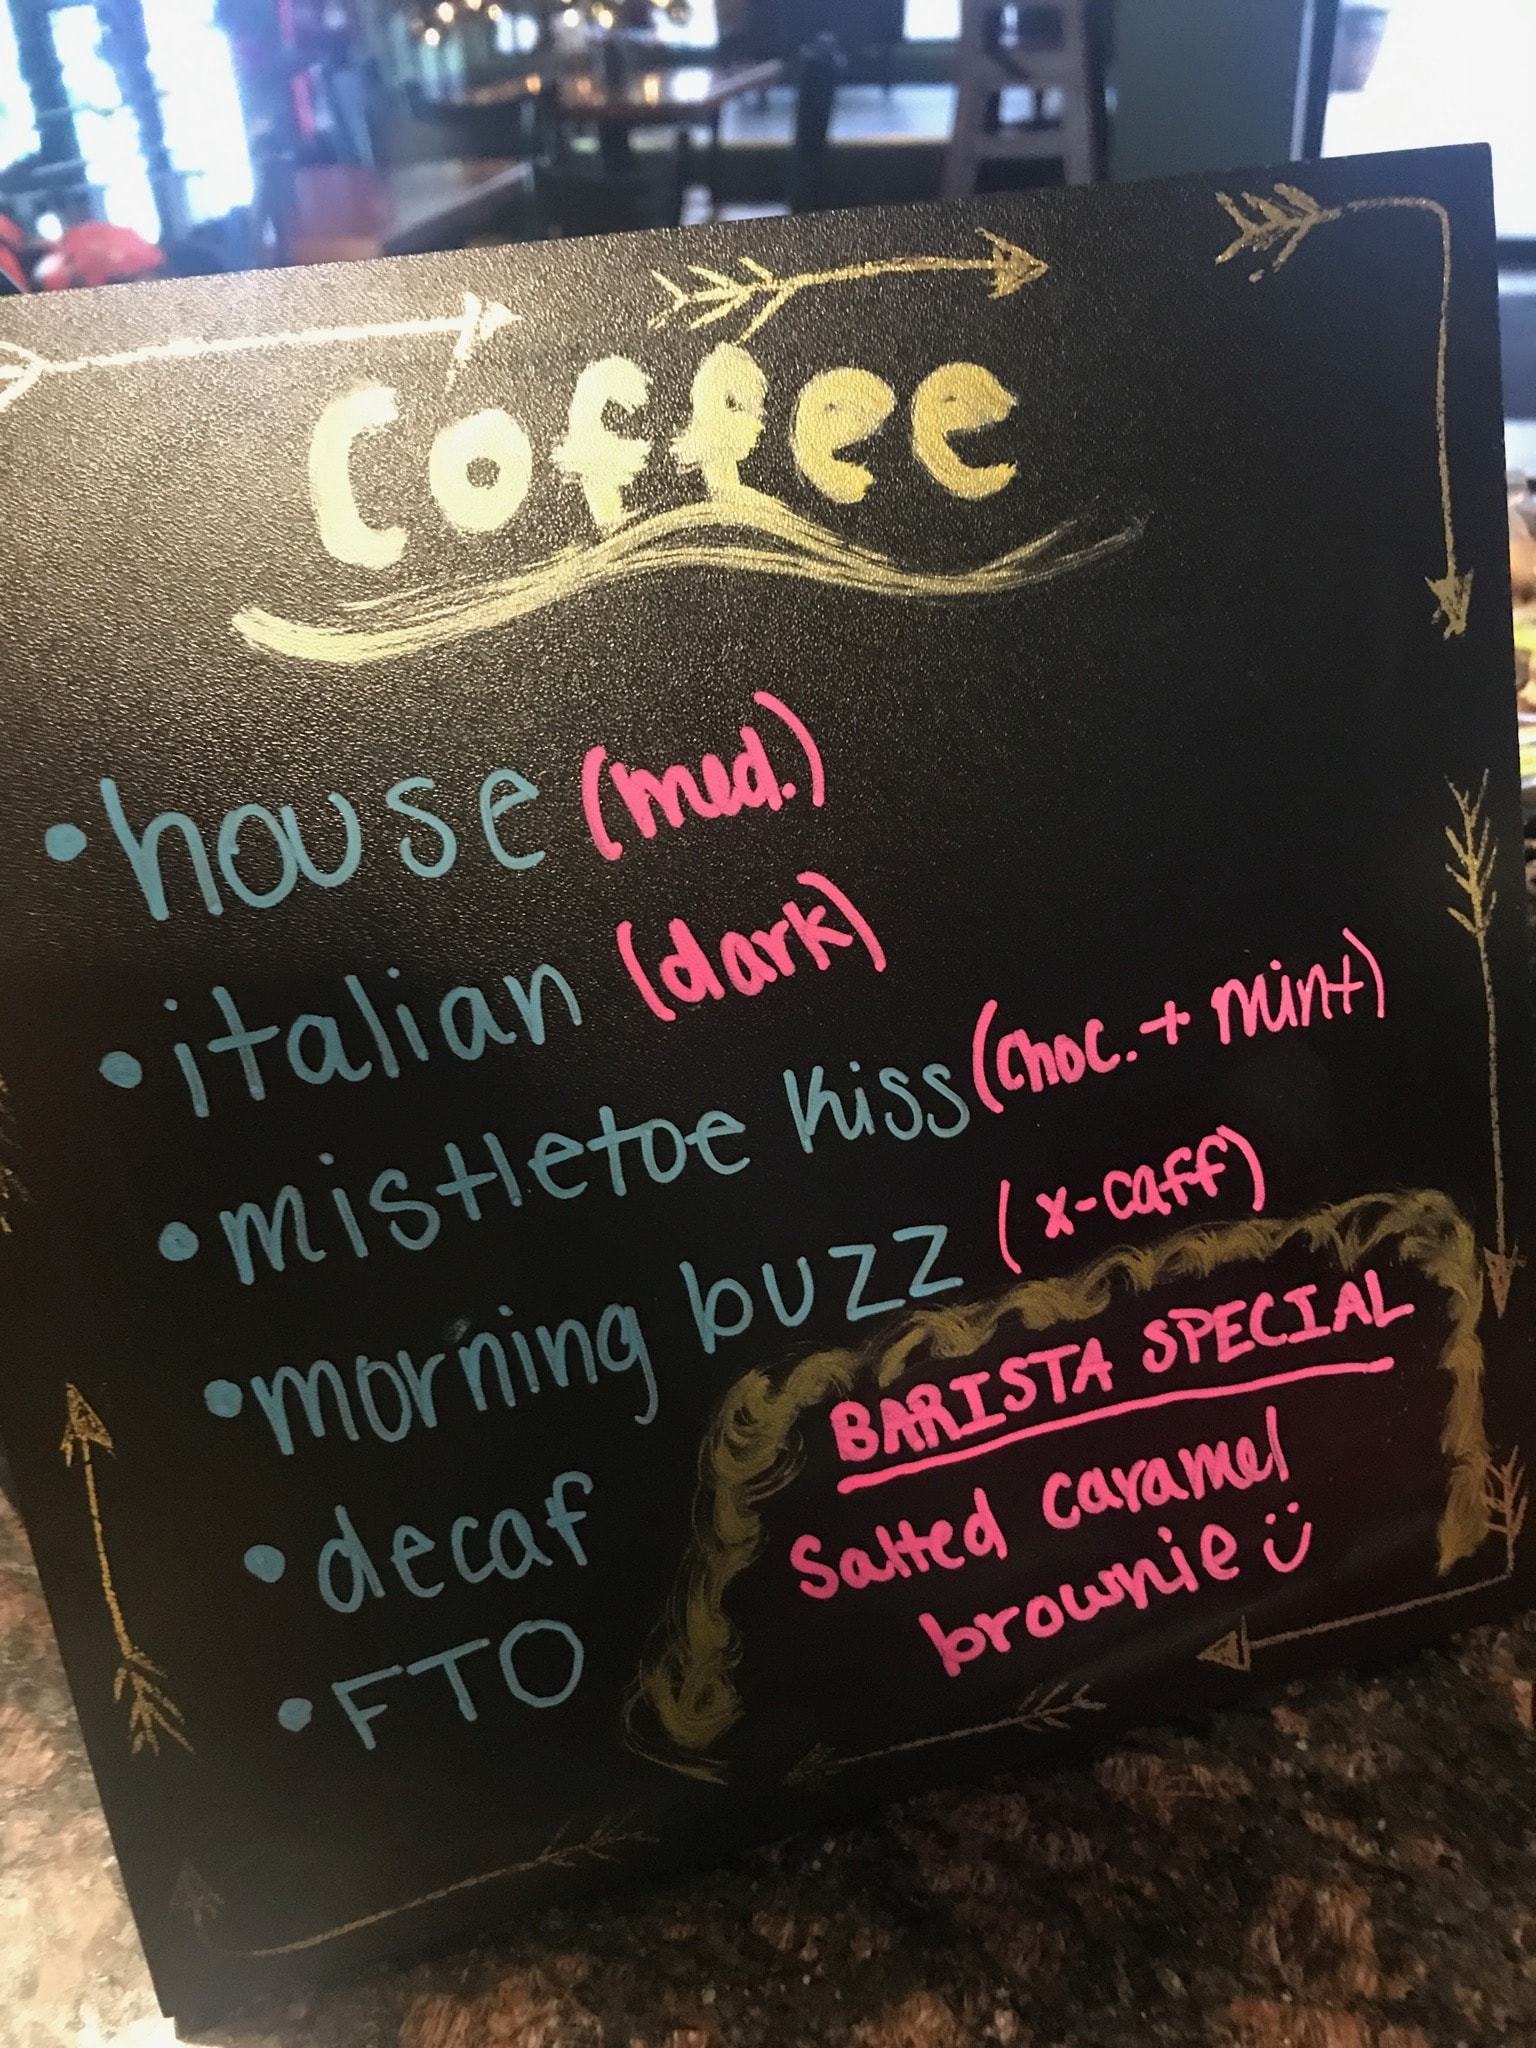 Coffee
• house (med.)
• italian (dark)
• mistletoe kiss (choc. + mint)
• morning buzz (x-caff)
• decaf
• FTO
BARISTA SPECIAL
Salted caramel
brownie :)